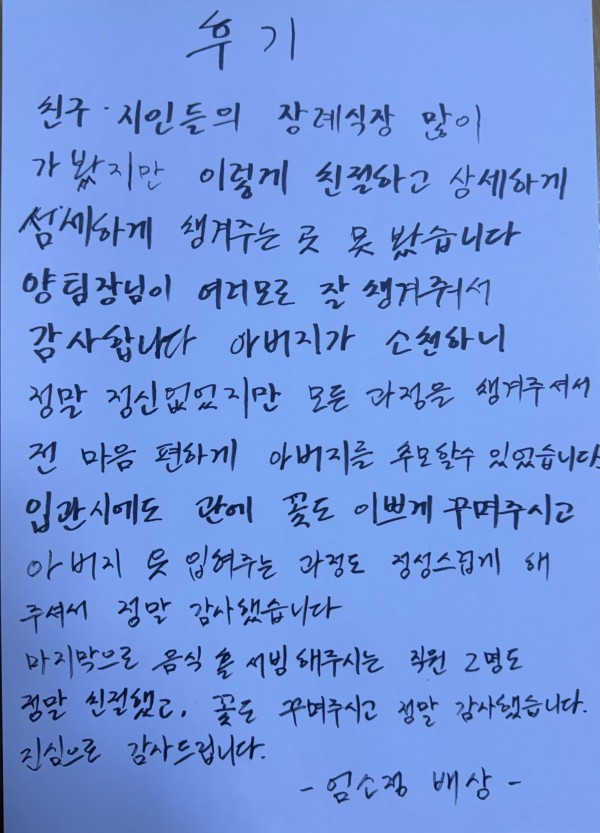 후기
친구·지인들의 장례식장 많이
가 봤지만 이렇게 친절하고 상세하게
섬세하게 챙겨주는 곳 못 봤습니다
양팀장님이 여러모로 잘 챙겨줘서
감사합니다 아버지가 소천하니
정말 정신없었지만 모든 과정을 챙겨주셔서
전 마음 편하게 아버지를 추모할수 있었습니다
입관시에도 관에 꽃도 이쁘게 꾸며주시고
아버지 옷 입혀주는 과정도 정성스럽게 해
주셔서 정말 감사했습니다
마지막으로 음식 홀 서빙 해주시는 직원 2명도
정말 친절했고, 꽃도 꾸며주시고 정말 감사했습니다.
진심으로 감사드립니다.
- 엄소정 배상 -